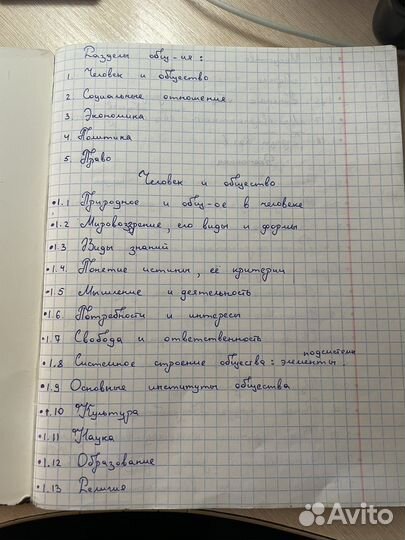 Разделы общ-ия:
1. Человек и общество
2 Социальные отношения
3. Экономика
4. Политика
5. Право
Человек и общество
•1.1 Природное и общ-ое в человеке
•1.2 Мировоззрение, его виды и формы
•1.3 Виды знаний
•1.4. Понетие истины, её критерии
•1.5 Мышление и деятельность
•1.6. Потребности и интересы
•1.7 Свобода и ответственность
подсистемы
•1.8 Системное строение общества: элементы
•1.9 Основные институты общества
•1.10 Культура
•1.11 Наука
•1.12 Образование
•1.13 Религия
Avito